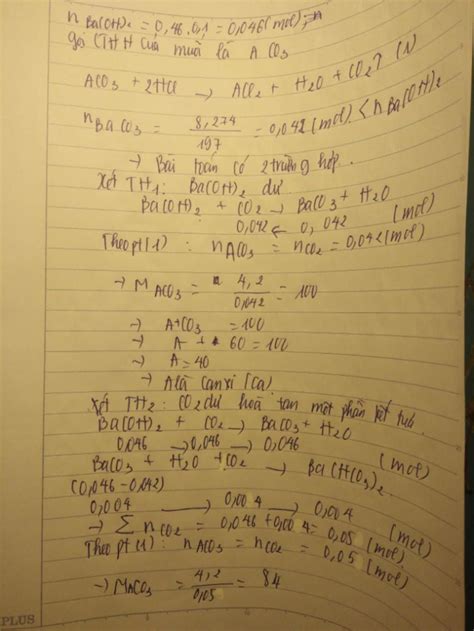 n Ba(OH)₂ = 0,46.0,1 = 0,046 (mol)
gọi CTHH của muối là ACO₃
ACO₃ + 2HCl → ACl₂ + H₂O + CO₂↑ (1)
nBaCO₃ = 8,274/197 = 0,042 (mol) < nBa(OH)₂
→ Bài toán có 2 trường hợp.
Xét TH1: Ba(OH)₂ dư
Ba(OH)₂ + CO₂ → BaCO₃ + H₂O
0,042 ← 0,042 (mol)
Theo pt(1): nACO₃ = nCO₂ = 0,042 (mol)
→ M ACO₃ = 4,2/0,042 = 100
→ A+CO₃ = 100
→ A + 60 = 100
→ A = 40
→ A là canxi (Ca)
Xét TH2: CO₂ dư hoà tan một phần kết tủa.
Ba(OH)₂ + CO₂ → BaCO₃ + H₂O
0,046 → 0,046 → 0,046 (mol)
BaCO₃ + H₂O + CO₂ → Ba(HCO₃)₂
(0,046-0,042)
0,004 → 0,004 → 0,004 (mol)
→ Σ nCO₂ = 0,046 + 0,004 = 0,05 (mol)
Theo pt(1): nACO₃ = nCO₂ = 0,05 (mol)
→ MACO₃ = 4,2/0,05 = 84
PLUS